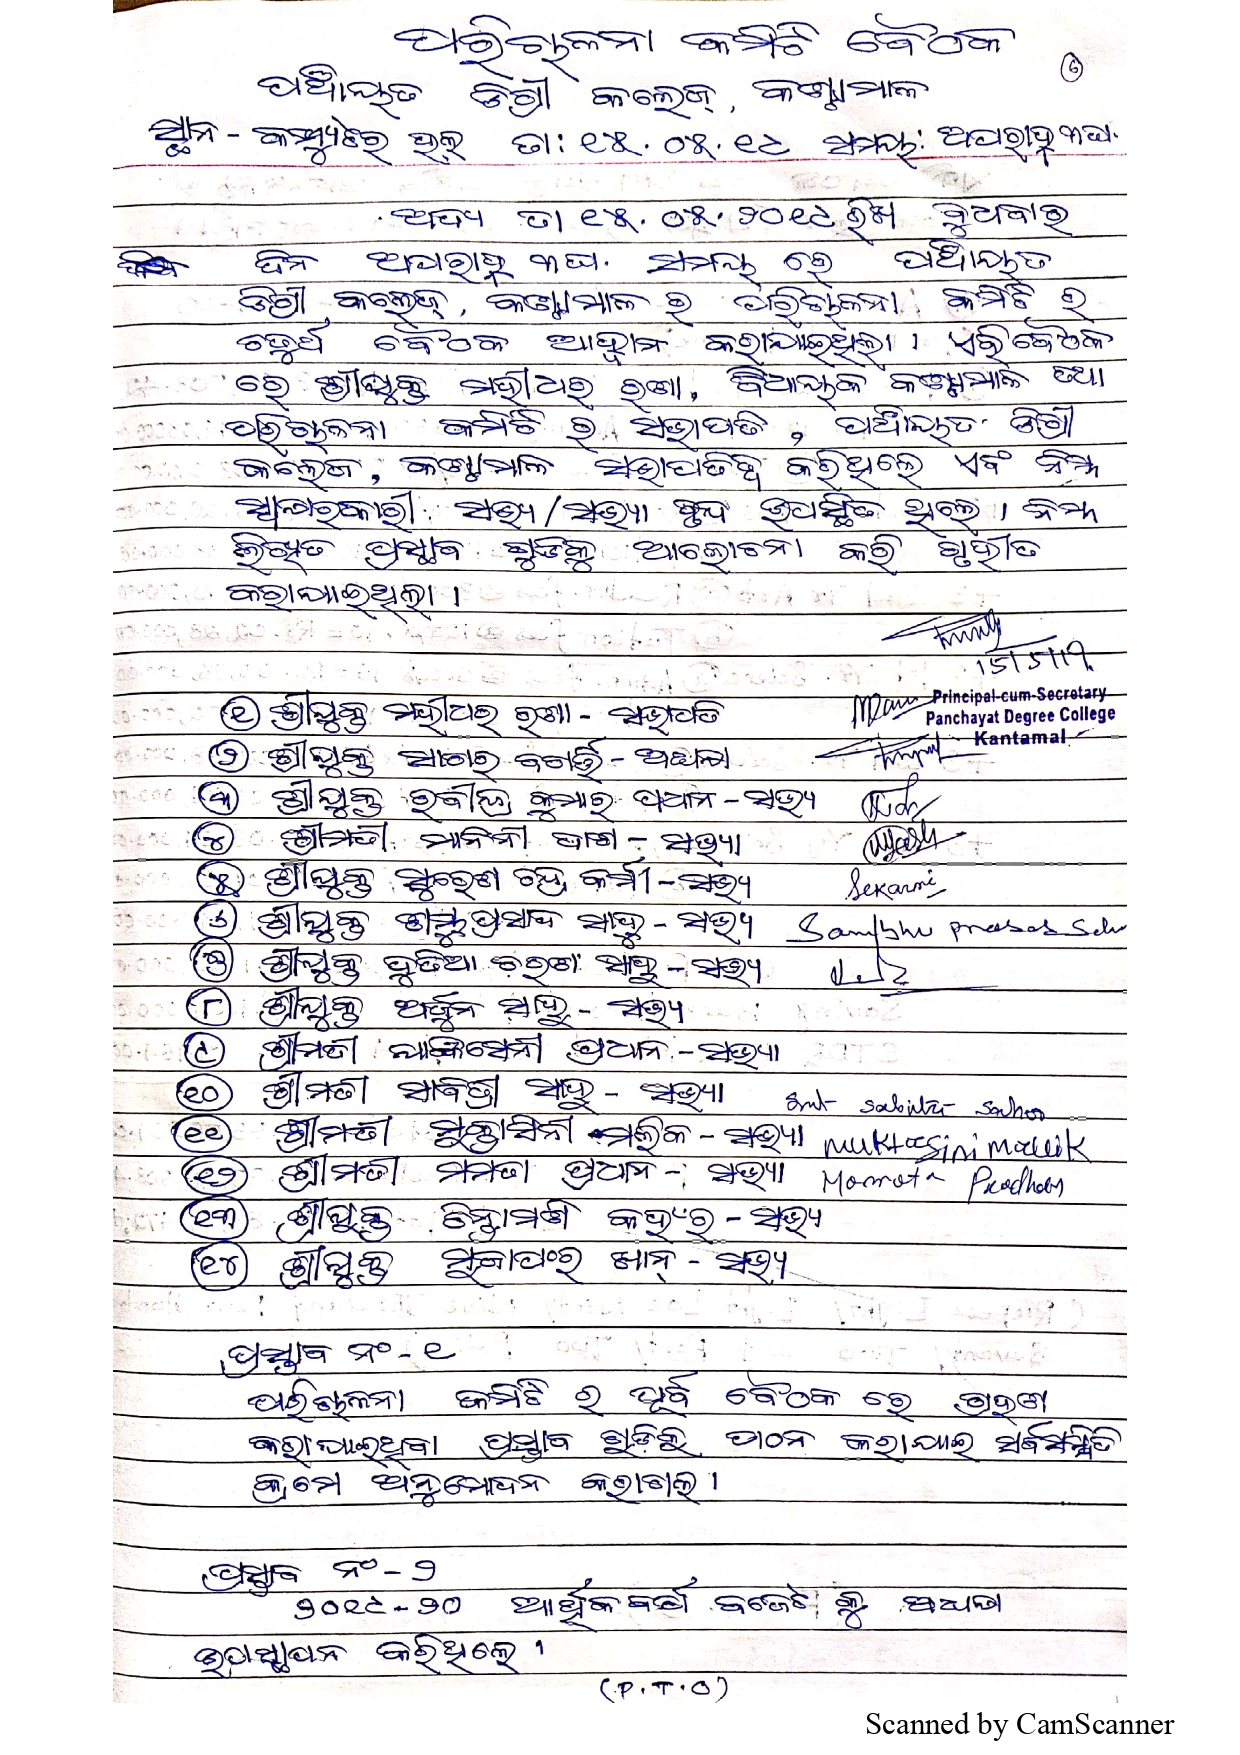 ପରିଚାଳନା କମିଟି ବୈଠକ
୬
ପଞ୍ଚାୟତ ଡିଗ୍ରୀ କଲେଜ୍, କଣ୍ଟାମାଳ
ସ୍ଥାନ - କମ୍ପ୍ୟୁଟର ହଲ୍ ତା: ୧୫.୦୫.୧୯ ସମୟ: ଅପରାହ୍ନ ୩ଘ.
ଅଦ୍ୟ ତା ୧୫.୦୫.୨୦୧୯ ରିଖ ବୁଧବାର
ଦିନ ଅପରାହ୍ନ ୩ଘ. ସମୟ ରେ ପଞ୍ଚାୟତ
ଡିଗ୍ରୀ କଲେଜ୍, କଣ୍ଟାମାଳ ର ପରିଚାଳନା କମିଟି ର
ଚତୁର୍ଥ ବୈଠକ ଆହ୍ୱାନ କରାଯାଇଥିଲା । ଏହି ବୈଠକ
ରେ ଶ୍ରୀଯୁକ୍ତ ମହୀଧର ରଣା, ବିଧାୟକ କଣ୍ଟାମାଳ ତଥା
ପରିଚାଳନା କମିଟି ର ସଭାପତି, ପଞ୍ଚାୟତ ଡିଗ୍ରୀ
କଲେଜ, କଣ୍ଟାମାଳ ସଭାପତିତ୍ୱ କରିଥିଲେ ଏବଂ ନିମ୍ନ
ସ୍ୱାକ୍ଷରକାରୀ ସଭ୍ୟ/ସଭ୍ୟା ବୃନ୍ଦ ଉପସ୍ଥିତ ଥିଲେ । ନିମ୍ନ
ଲିଖିତ ପ୍ରସ୍ତାବ ଗୁଡିକୁ ଆଲୋଚନା କରି ଗୃହୀତ
କରାଯାଇଥିଲା ।
15/5/19
Principal-cum-Secretary
Panchayat Degree College
Kantamal
୧ ଶ୍ରୀଯୁକ୍ତ ମହୀଧର ରଣା - ସଭାପତି
୨ ଶ୍ରୀଯୁକ୍ତ ସାଗର ବଗର୍ତ୍ତି - ଅଧ୍ୟକ୍ଷ
୩ ଶ୍ରୀଯୁକ୍ତ ରବୀନ୍ଦ୍ର କୁମାର ପ୍ରଧାନ - ସଭ୍ୟ
୪ ଶ୍ରୀମତୀ ମାନିନୀ ଦାଶ - ସଭ୍ୟା
୫ ଶ୍ରୀଯୁକ୍ତ ସୁରେଶ ଚନ୍ଦ୍ର କର୍ମୀ - ସଭ୍ୟ Sekarmi
୬ ଶ୍ରୀଯୁକ୍ତ ଶମ୍ଭୁପ୍ରସାଦ ସାହୁ - ସଭ୍ୟ Sambhu prasad Sahu
୭ ଶ୍ରୀଯୁକ୍ତ ଚରଣ ସାହୁ - ସଭ୍ୟ
୮ ଶ୍ରୀଯୁକ୍ତ ଅର୍ଜୁନ ସାହୁ - ସଭ୍ୟ
୯ ଶ୍ରୀମତୀ ଯାଜ୍ଞସେନୀ ପ୍ରଧାନ - ସଭ୍ୟା
୧୦ ଶ୍ରୀମତୀ ସାବିତ୍ରୀ ସାହୁ - ସଭ୍ୟା Smt sabitri sahoo
୧୧ ଶ୍ରୀମତୀ ମୁକ୍ତାସିନୀ ମଲିକ - ସଭ୍ୟା Muktasini mallik
୧୨ ଶ୍ରୀମତୀ ମମତା ପ୍ରଧାନ - ସଭ୍ୟା Mamata Pradhan
୧୩ ଶ୍ରୀଯୁକ୍ତ ଚିନ୍ତାମଣୀ କହଁର - ସଭ୍ୟ
୧୪ ଶ୍ରୀଯୁକ୍ତ ଖାନ୍ - ସଭ୍ୟ
ପ୍ରସ୍ତାବ ନଂ - ୧
ପରିଚାଳନା କମିଟି ର ପୂର୍ବ ବୈଠକ ରେ ଗ୍ରହଣ
କରାଯାଇଥିବା ପ୍ରସ୍ତାବ ଗୁଡ଼ିକୁ ପଠନ କରାଯାଇ ସର୍ବସମ୍ମତି
କ୍ରମେ ଅନୁମୋଦନ କରାଗଲା ।
ପ୍ରସ୍ତାବ ନଂ - ୨
୨୦୧୯-୨୦ ଆର୍ଥିକ ବର୍ଷ ବଜେଟ୍ କୁ ଅଧ୍ୟକ୍ଷ
ଉପସ୍ଥାପନ କରିଥିଲେ ।
(P.T.O)
Scanned by CamScanner